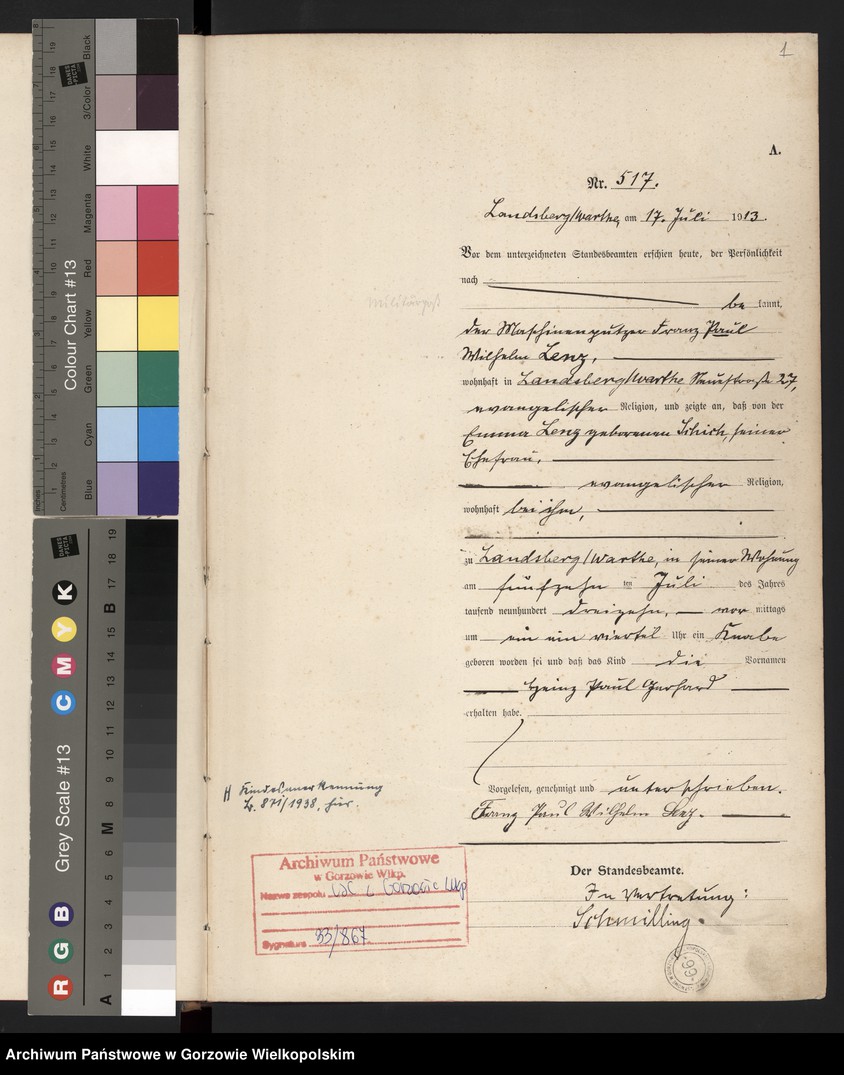 1
A.
Nr. 517.
Landsberg/Warthe, am 17. Juli 1913.
Vor dem unterzeichneten Standesbeamten erschien heute, der Persönlichkeit
nach
be kannt,
Militärpaß
der Maschinenputzer Franz Paul
Wilhelm Lenz,
wohnhaft in Landsberg/Warthe, Neuestraße 27,
evangelischer Religion, und zeigte an, daß von der
Emma Lenz geborenen Schich, seiner
Ehefrau,
evangelischer Religion,
wohnhaft bei ihm,
zu Landsberg/Warthe, in seiner Wohnung
am fünfzehn ten Juli des Jahres
tausend neunhundert dreizehn, vor mittags
um ein ein viertel Uhr ein Knabe
geboren worden sei und daß das Kind die Vornamen
Heinz Paul Gerhard
erhalten habe.
Vorgelesen, genehmigt und unterschrieben.
Franz Paul Wilhelm Lenz.
H Kindesanerkennung
871/1938, hier.
Der Standesbeamte.
In Vertretung:
Schmilling.
Archiwum Państwowe
w Gorzowie Wlkp.
Nazwa zespołu USC w Gorzowie Wlkp
Sygnatura 93/867
93
Colour Chart #13
Blue Cyan Green Yellow Red Magenta White 3/Color Black
Inches
Centimetres
DANES
PICTA
Grey Scale #13
R G B C M Y K
A 1 2 3 4 5 6 M 8 9 10 11 12 13 14 15 B 17 18 19
Archiwum Państwowe w Gorzowie Wielkopolskim